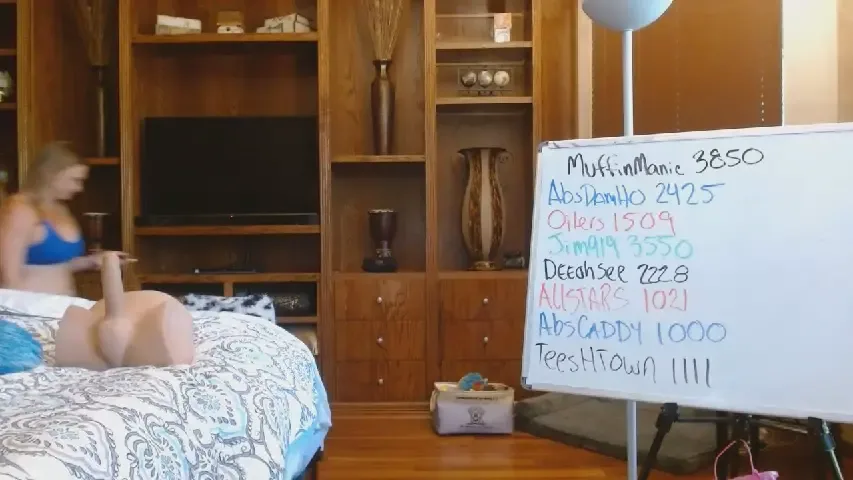 MuffinManic 3850
AbsDamHo 2425
Oilers 1509
Jim919 3550
DEEahSee 2228
AllSTARS 1021
AbsCADDY 1000
TeesHTown 1111